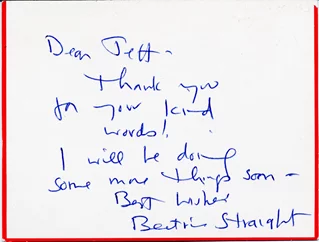 Dear Jeff -
Thank you
for your kind
words!
I will be doing
some more things soon -
Best wishes
Beatrice Straight